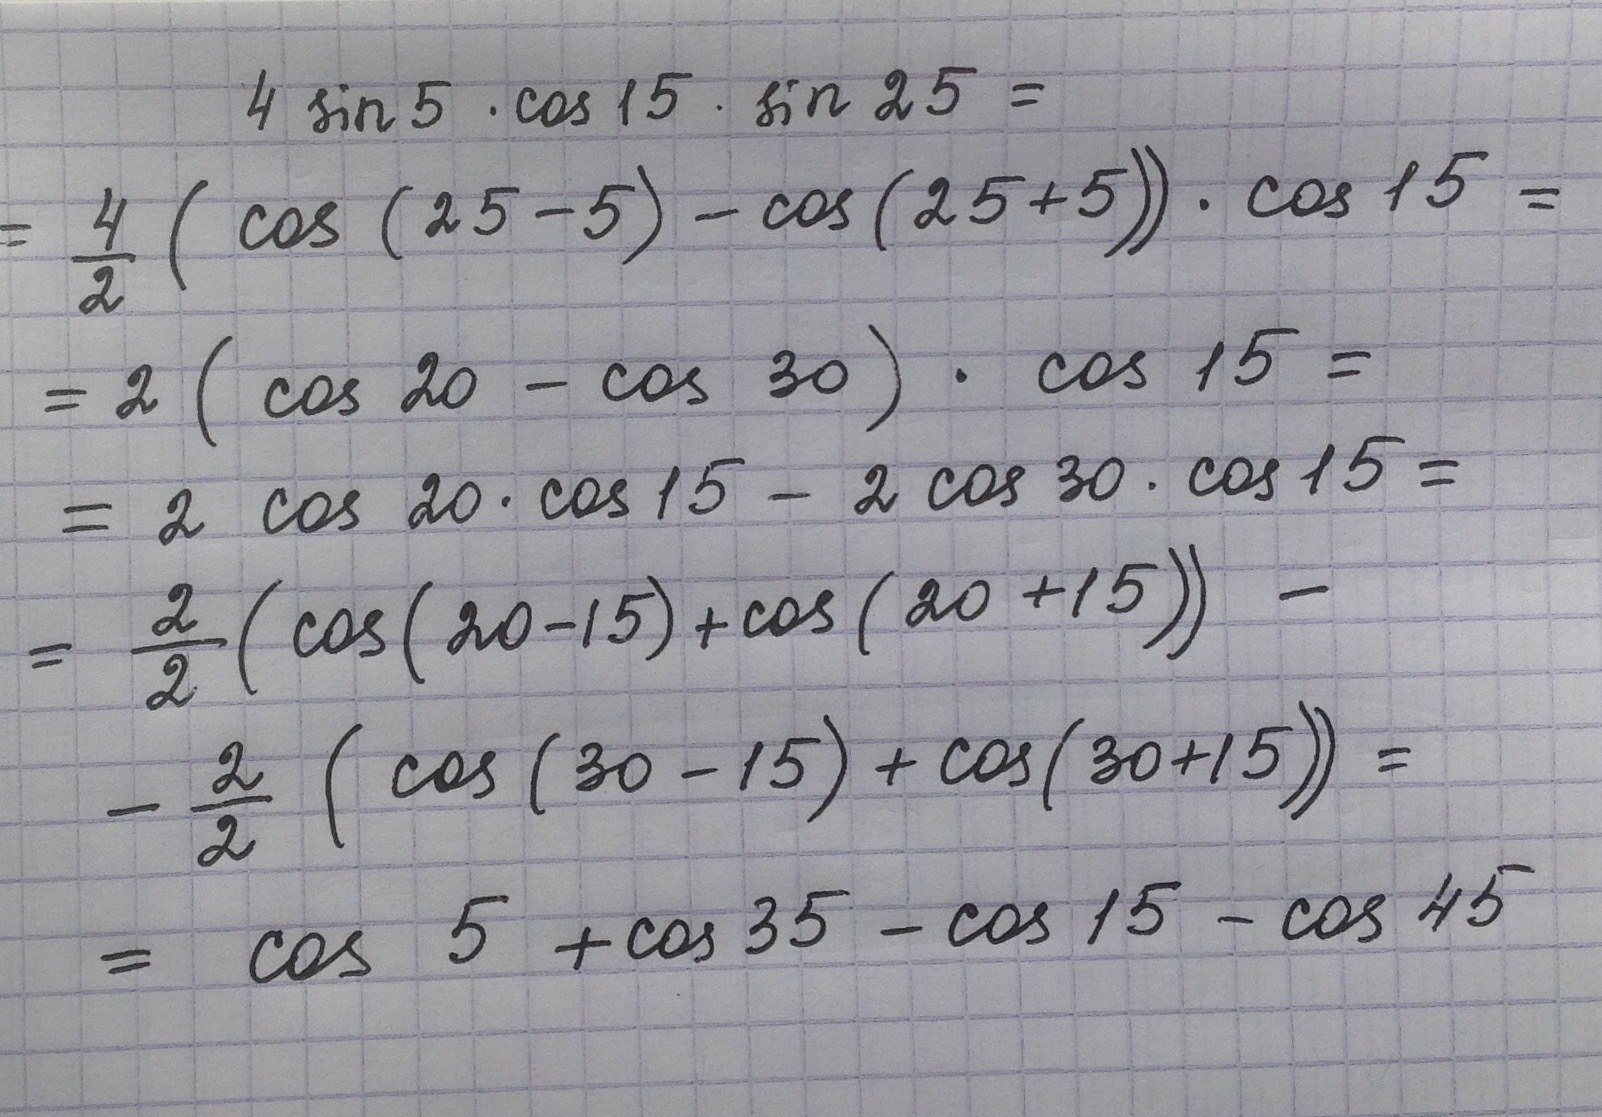 4 sin 5 · cos 15 · sin 25 =
= 4/2 ( cos (25 - 5) - cos (25 + 5)) · cos 15 =
= 2 ( cos 20 - cos 30 ) · cos 15 =
= 2 cos 20 · cos 15 - 2 cos 30 · cos 15 =
= 2/2 ( cos (20 - 15) + cos (20 + 15)) -
- 2/2 ( cos (30 - 15) + cos (30 + 15)) =
= cos 5 + cos 35 - cos 15 - cos 45